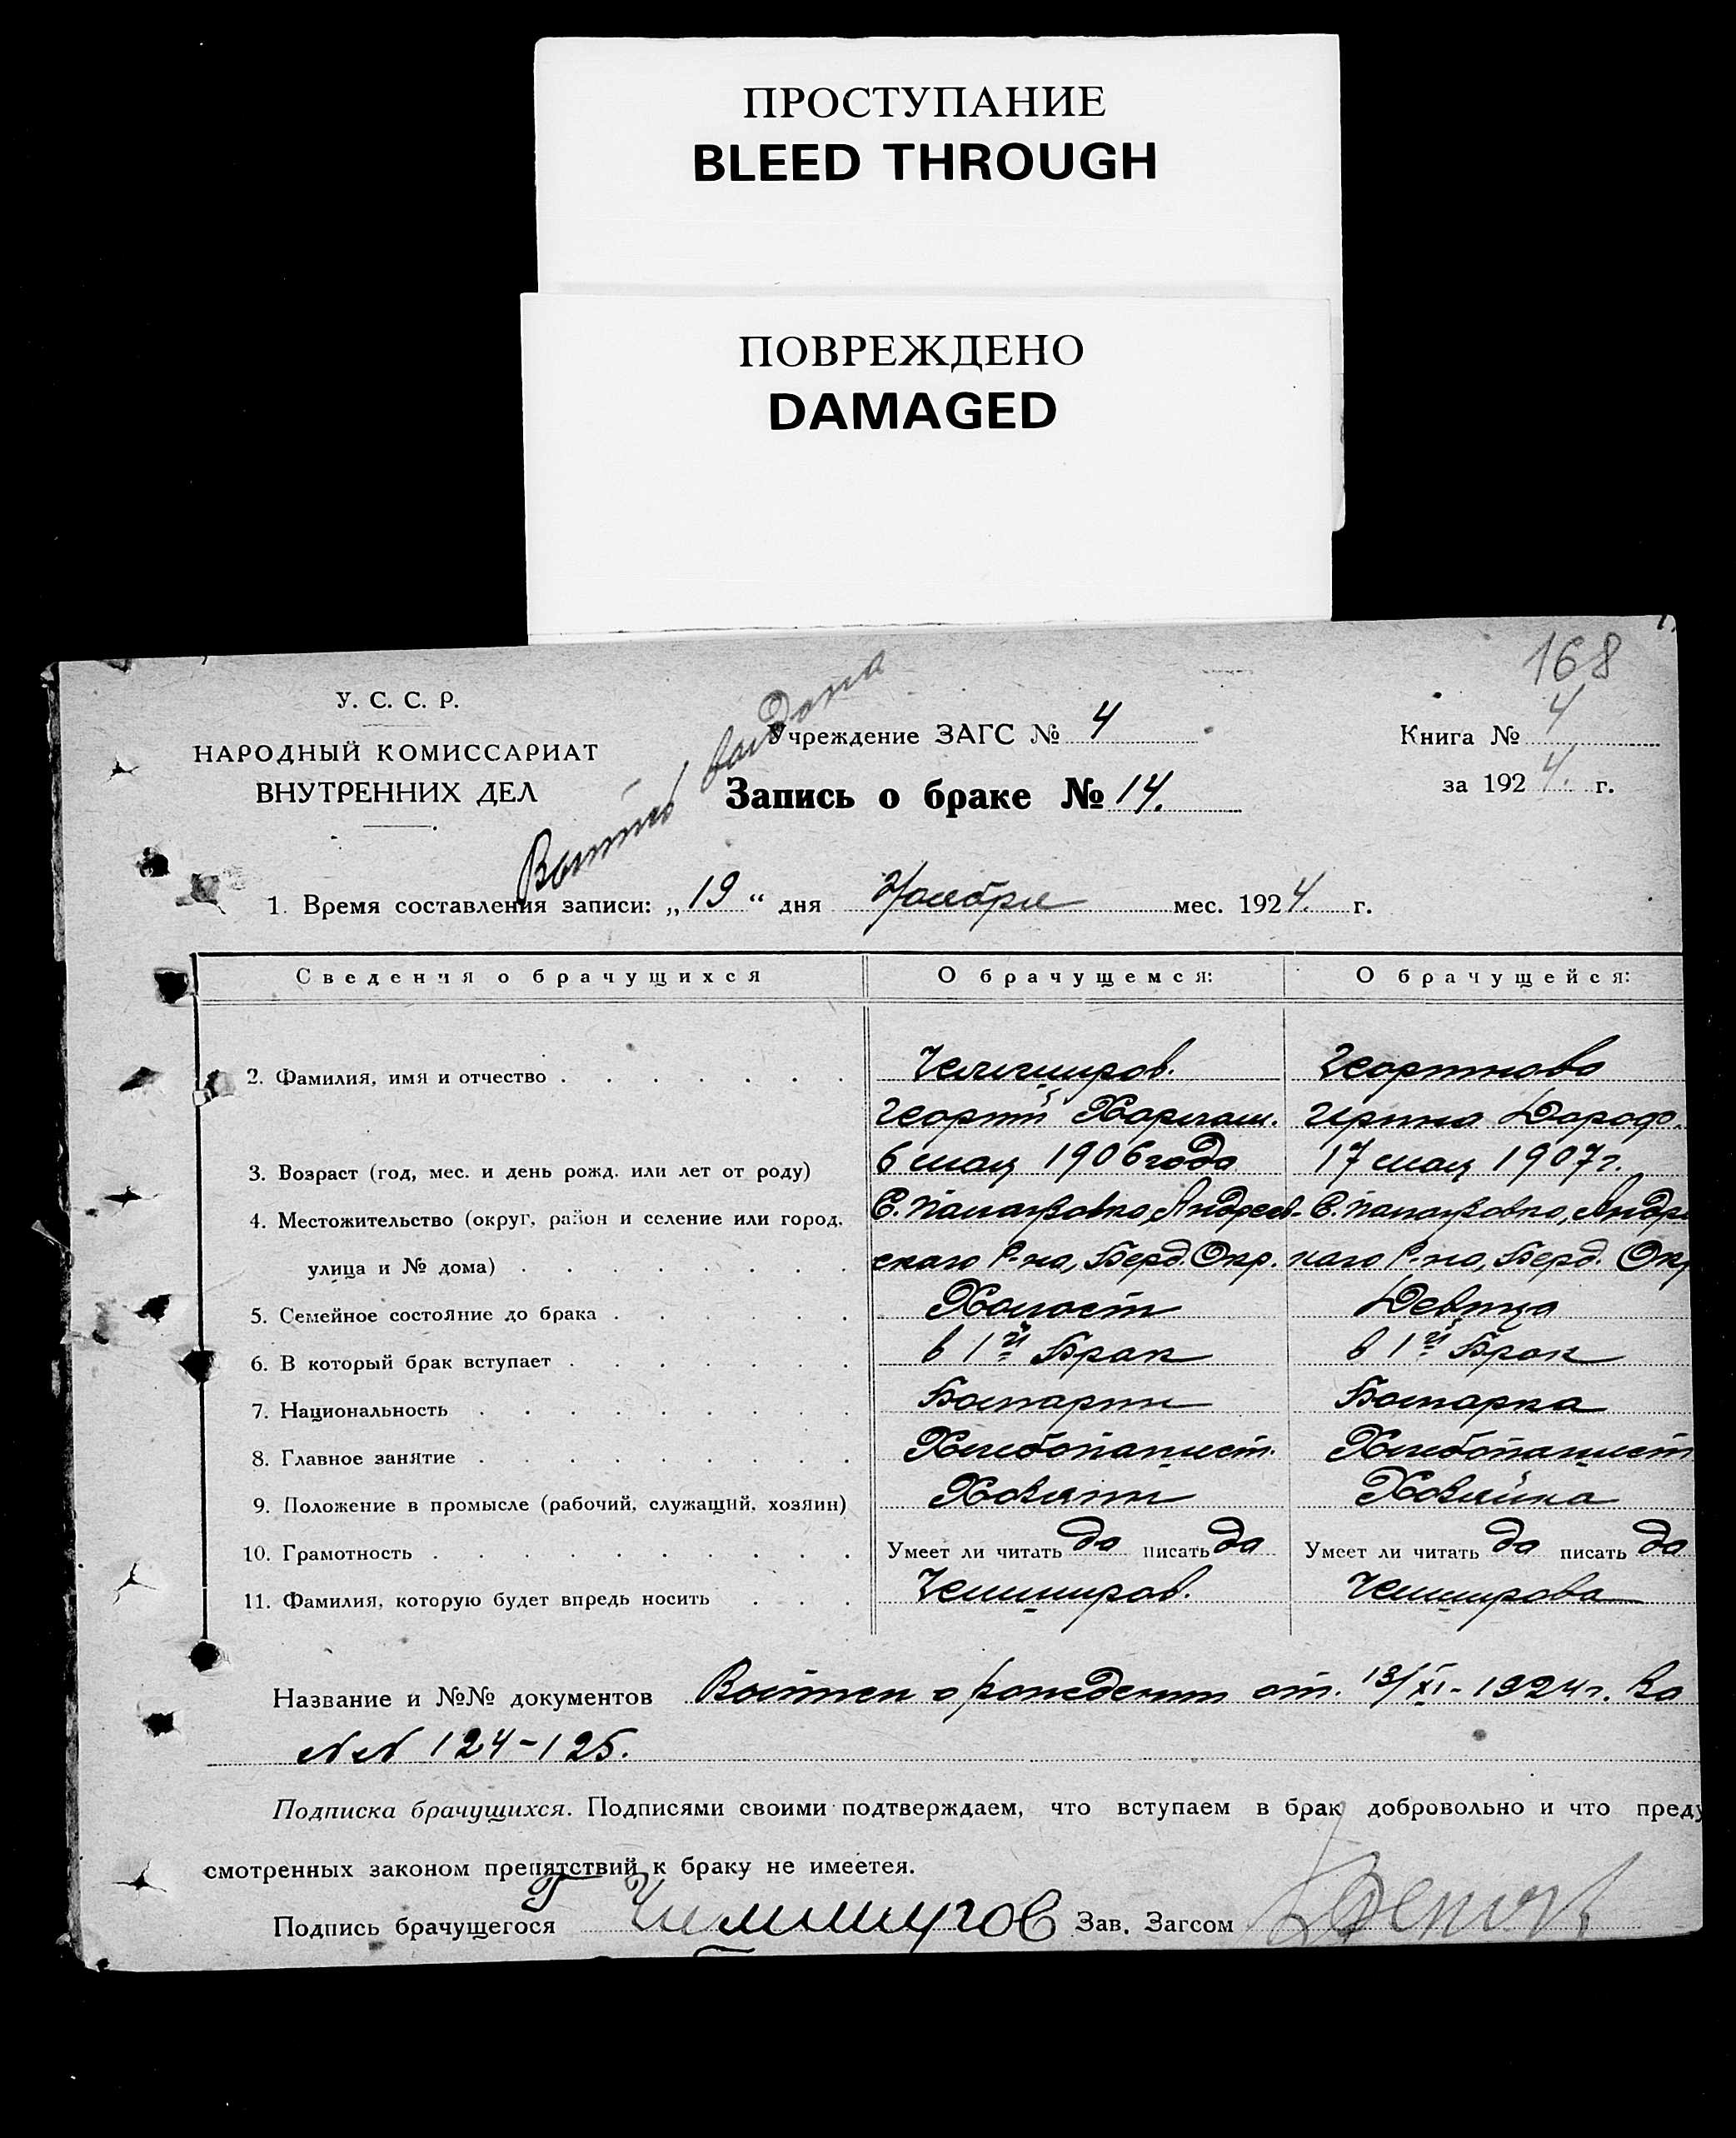 ПРОСТУПАНИЕ
BLEED THROUGH
ПОВРЕЖДЕНО
DAMAGED
168
У. С. С. Р.
НАРОДНЫЙ КОМИССАРИАТ
ВНУТРЕННИХ ДЕЛ
Выпись выдана
Учреждение ЗАГС № 4
Запись о браке № 14.
Книга № 4
за 1924 г.
1. Время составления записи: „19“ дня Ноября мес. 1924 г.
Сведения о брачущихся О брачущемся: О брачущейся:
2. Фамилия, имя и отчество
Георгий Харлам. Дороф.
3. Возраст (год, мес. и день рожд. или лет от роду) 6 мая 1906 года 17 мая 1907 г.
4. Местожительство (округ, район и селение или город, С. Палаузовка, Андреев- С. Палаузовка, Андре
улица и № дома) скаго Р-на, Берд. Окр. скаго Р-на, Берд. Окр
5. Семейное состояние до брака Холост Девица
6. В который брак вступает в 1й Брак в 1й Брак
7. Национальность Болгарин Болгарка
8. Главное занятие Хлебопашест. Хлебопашест
9. Положение в промысле (рабочий, служащий, хозяин) Хозяин Хозяйка
10. Грамотность Умеет ли читать да писать да Умеет ли читать да писать да
11. Фамилия, которую будет впредь носить Чешмиров. Чешмирова
Название и №№ документов Выписи о рождении от. 13/XI-1924 г. За
№№ 124-125.
Подписка брачущихся. Подписями своими подтверждаем, что вступаем в брак добровольно и что преду
смотренных законом препятствий к браку не имеетея.
Подпись брачущегося Зав. Загсом